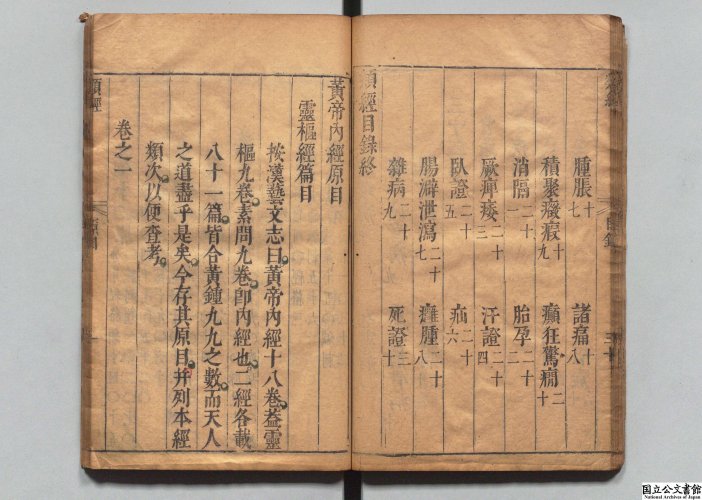 腫脹十七
諸痛十八
積聚癥瘕十九
癲狂驚癇二十
消隔二十一
胎孕二十二
厥痺痿二十三
汗證二十四
臥證二十五
疝二十六
腸澼泄瀉二十七
癰腫二十八
雜病二十九
死證三十
類經目錄終
目錄
黃帝內經原目
靈樞經篇目
按漢藝文志曰黃帝內經十八卷蓋靈
樞九卷素問九卷卽內經也二經各載
八十一篇皆合黃鍾九九之數而天人
之道盡乎是矣今存其原目幷列本經
類次以便查考
卷之一
類經
原目
一
国立公文書館
National Archives of Japan